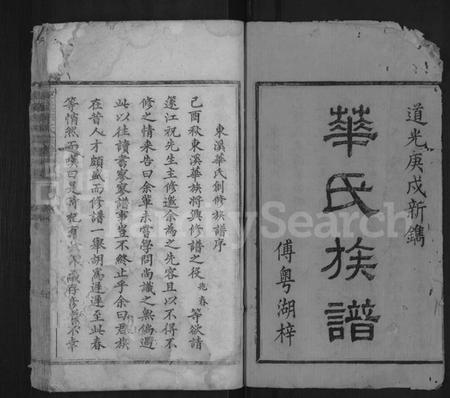 道光庚戌新鐫
華氏族譜
傅粵湖梓
東溪華氏創修族譜序
己酉秋東溪華族將興修譜之役兆春等欲請
蓬江祝先生主修邀余為之先容且以不得不
修之情來告曰余輩未嘗學問尚識之無倘過
此以往讀書家寥寥譜事豈不終止乎余曰君族
在昔人才頗盛而修譜一舉胡為遲遲至此春
等悄然而嘆曰是有不幸
MySearch